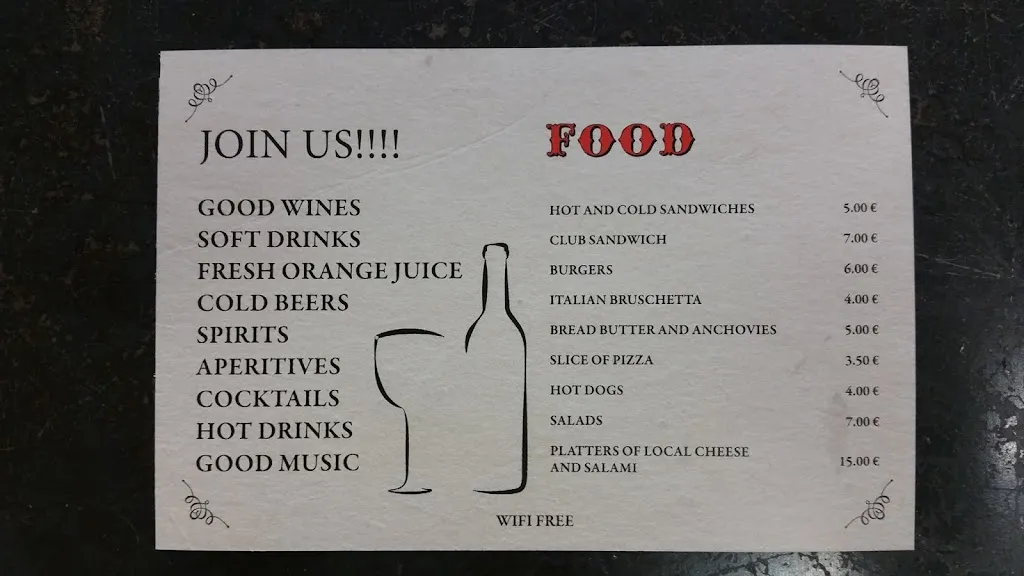 JOIN US!!!!
GOOD WINES
SOFT DRINKS
FRESH ORANGE JUICE
COLD BEERS
SPIRITS
APERITIVES
COCKTAILS
HOT DRINKS
GOOD MUSIC
FOOD
HOT AND COLD SANDWICHES 5.00 €
CLUB SANDWICH 7.00 €
BURGERS 6.00 €
ITALIAN BRUSCHETTA 4.00 €
BREAD BUTTER AND ANCHOVIES 5.00 €
SLICE OF PIZZA 3.50 €
HOT DOGS 4.00 €
SALADS 7.00 €
PLATTERS OF LOCAL CHEESE
AND SALAMI 15.00 €
WIFI FREE